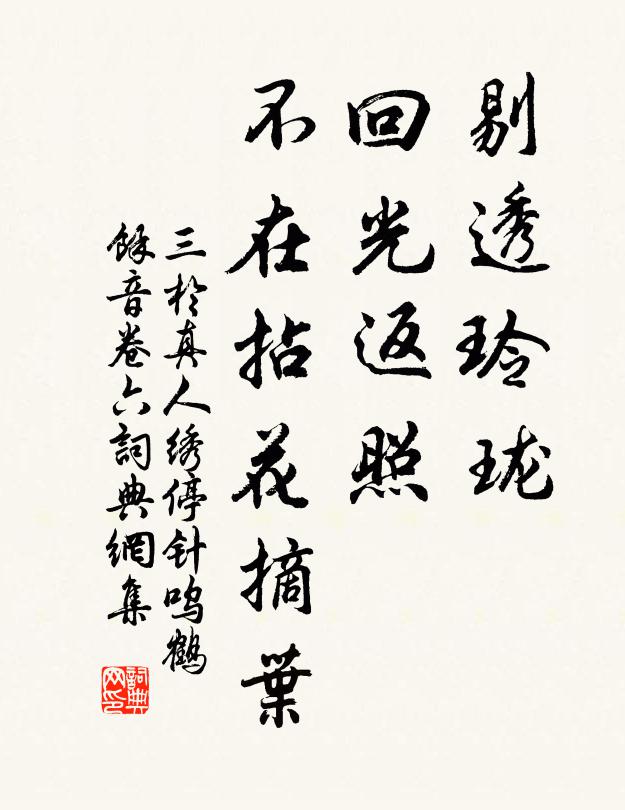 剔透玲珑
回光返照
不在拈花摘葉
三於真人绣停针鸣鶴
餘音卷六詞典網集
詞典
网印